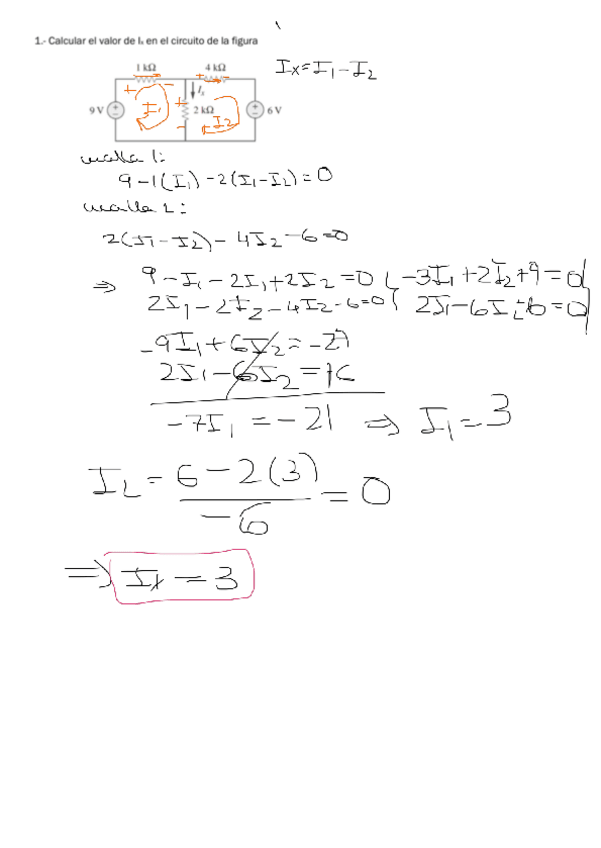 1.- Calcular el valor de Iₓ en el circuito de la figura
Ix=I1-I2
1 kΩ
4 kΩ
+ - + -
9 V
I1
+
-
Iₓ
2 kΩ
I2
6 V
malla 1:
9-1(I1)-2(I1-I2)=0
malla 2:
2(I1-I2)-4I2-6=0
⇒ 9-I1-2I1+2I2=0 { -3I1+2I2+9=0
2I1-2I2-4I2-6=0 { 2I1-6I2-6=0
-9I1+6I2=-27
2I1-6I2=+6
-7I1=-21 ⇒ I1=3
I2 = 6-2(3) / -6 = 0
⇒ Ix=3